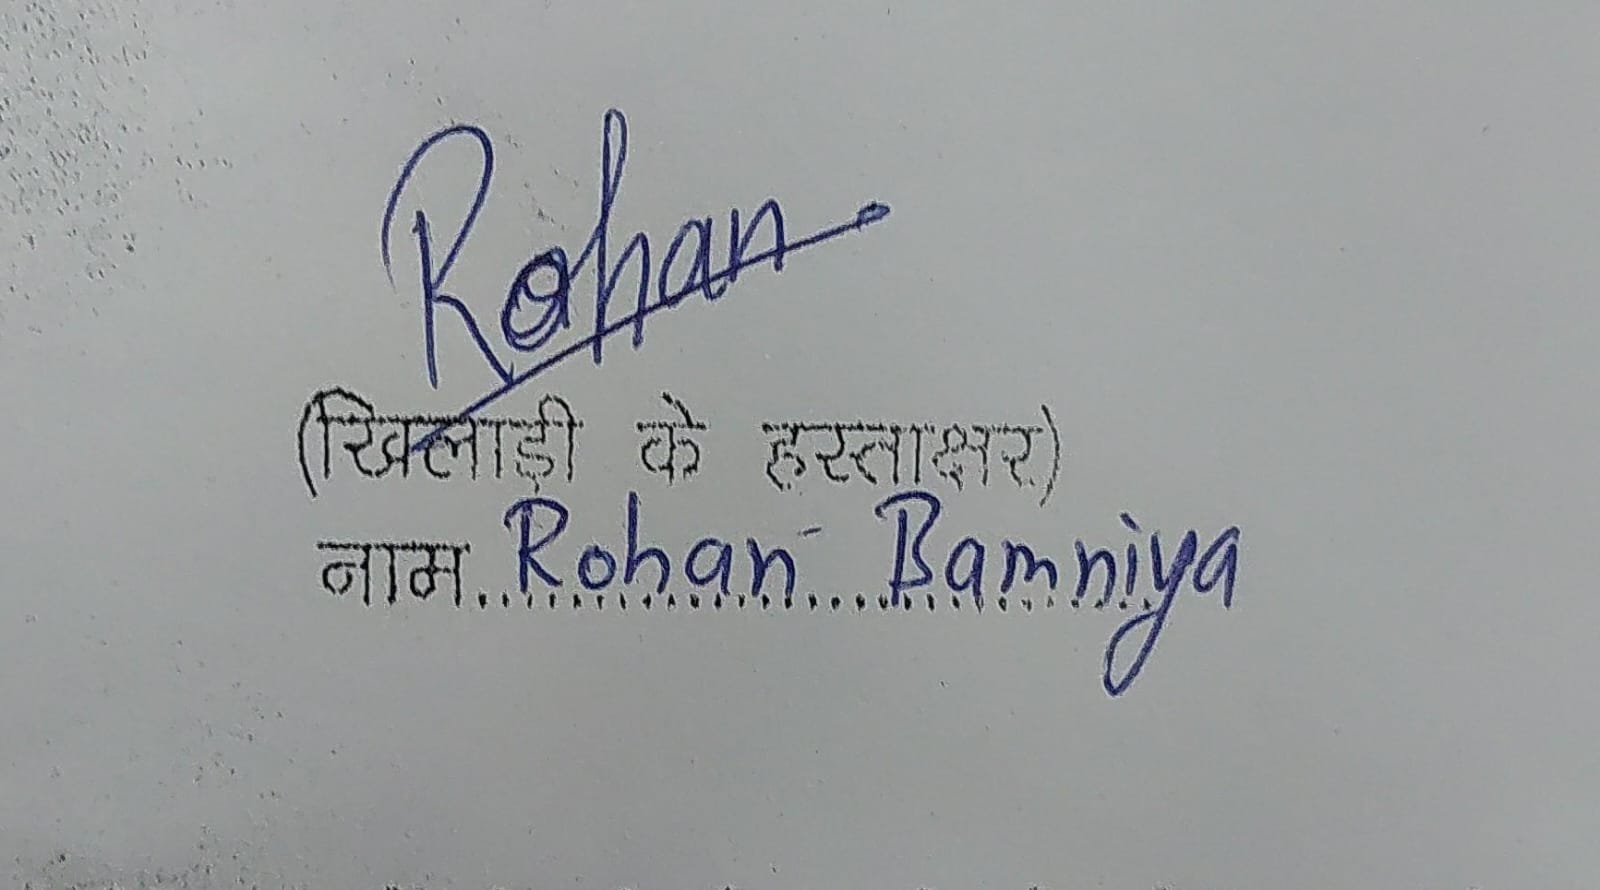 Rohan
(खिलाड़ी के हस्ताक्षर)
नाम..Rohan....Bamniya